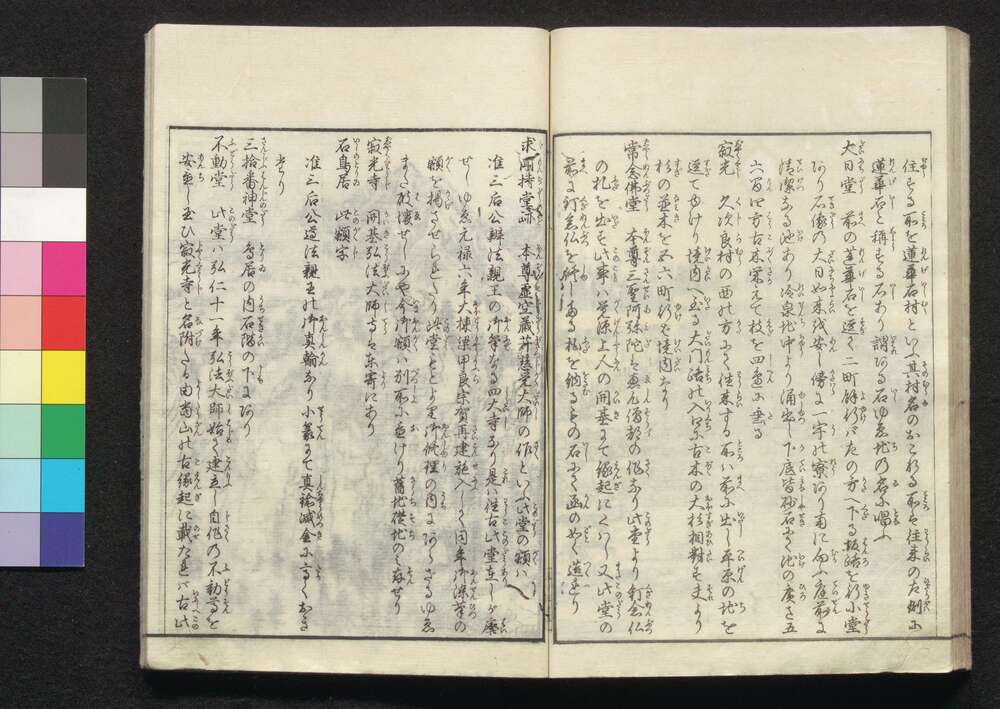 住する所を蓮華石村といふ其村名のおこれる所は往来の左側に
蓮華石と称する石あり謂ゆる石ゆゑ地の名に唱ふ
大日堂 前の蓮華石を過て二町許にて左の方へ下る坂路を行小堂
あり石像の大日如来を安し傍に一宇の寮あり南に向ふ庭前に
清潔なる池あり冷泉地中より涌出し下底皆砂石にて池の広さ五
六間四方古木栄えて枝を四辺に垂る
寂光 久次良村の西の方にて往来する所は前に出し平原の地を
過てゆけり境内へ至る大門路の入口に古木の大杉相対す夫より
杉の並木を五六町行て境内に入
常念仏堂 本尊三聖阿弥陀は恵心僧都の作なり此堂より釘念仏
の札を出す此事は覚源上人の開基にて縁起にくはし又此堂の
前に釘念仏を修したる札を納るの石にて函の如く造れり
求聞持堂跡 本尊虚空蔵菩薩慈覚大師の作といふ此堂の額は
准三后公弁法親王の御筆なる四大寺なり是は往古此堂在しが廃
せしゆゑ元禄六年大棟梁甲良宗賀再建施入しく同年御染筆の
額を掲させせられたり此堂もとより御修理の内にあらざるゆゑ
また破壊せしにや今御額は別所に在けり旧地礎地のみ存せり
寂光寺 開基弘法大師寺は東寄にあり
石鳥居 此額字
准三后公遵法親王の御真翰なり小篆にて真鍮滅金にてうちおき
たり
三拾番神堂 鳥居の内石階の下にあり
不動堂 此堂は弘仁十一年弘法大師始て建立し自作の不動尊を
安置し玉ひ寂光寺と名附たる由当山の古縁起に載たれは古此